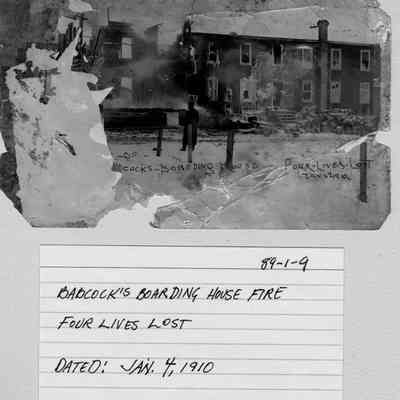 COCKS-BOARDING HOUSE FOUR-LIVES-LOST
89-1-9
BABCOCK'S BOARDING HOUSE FIRE
FOUR LIVES LOST
DATED: JAN. 4, 1910